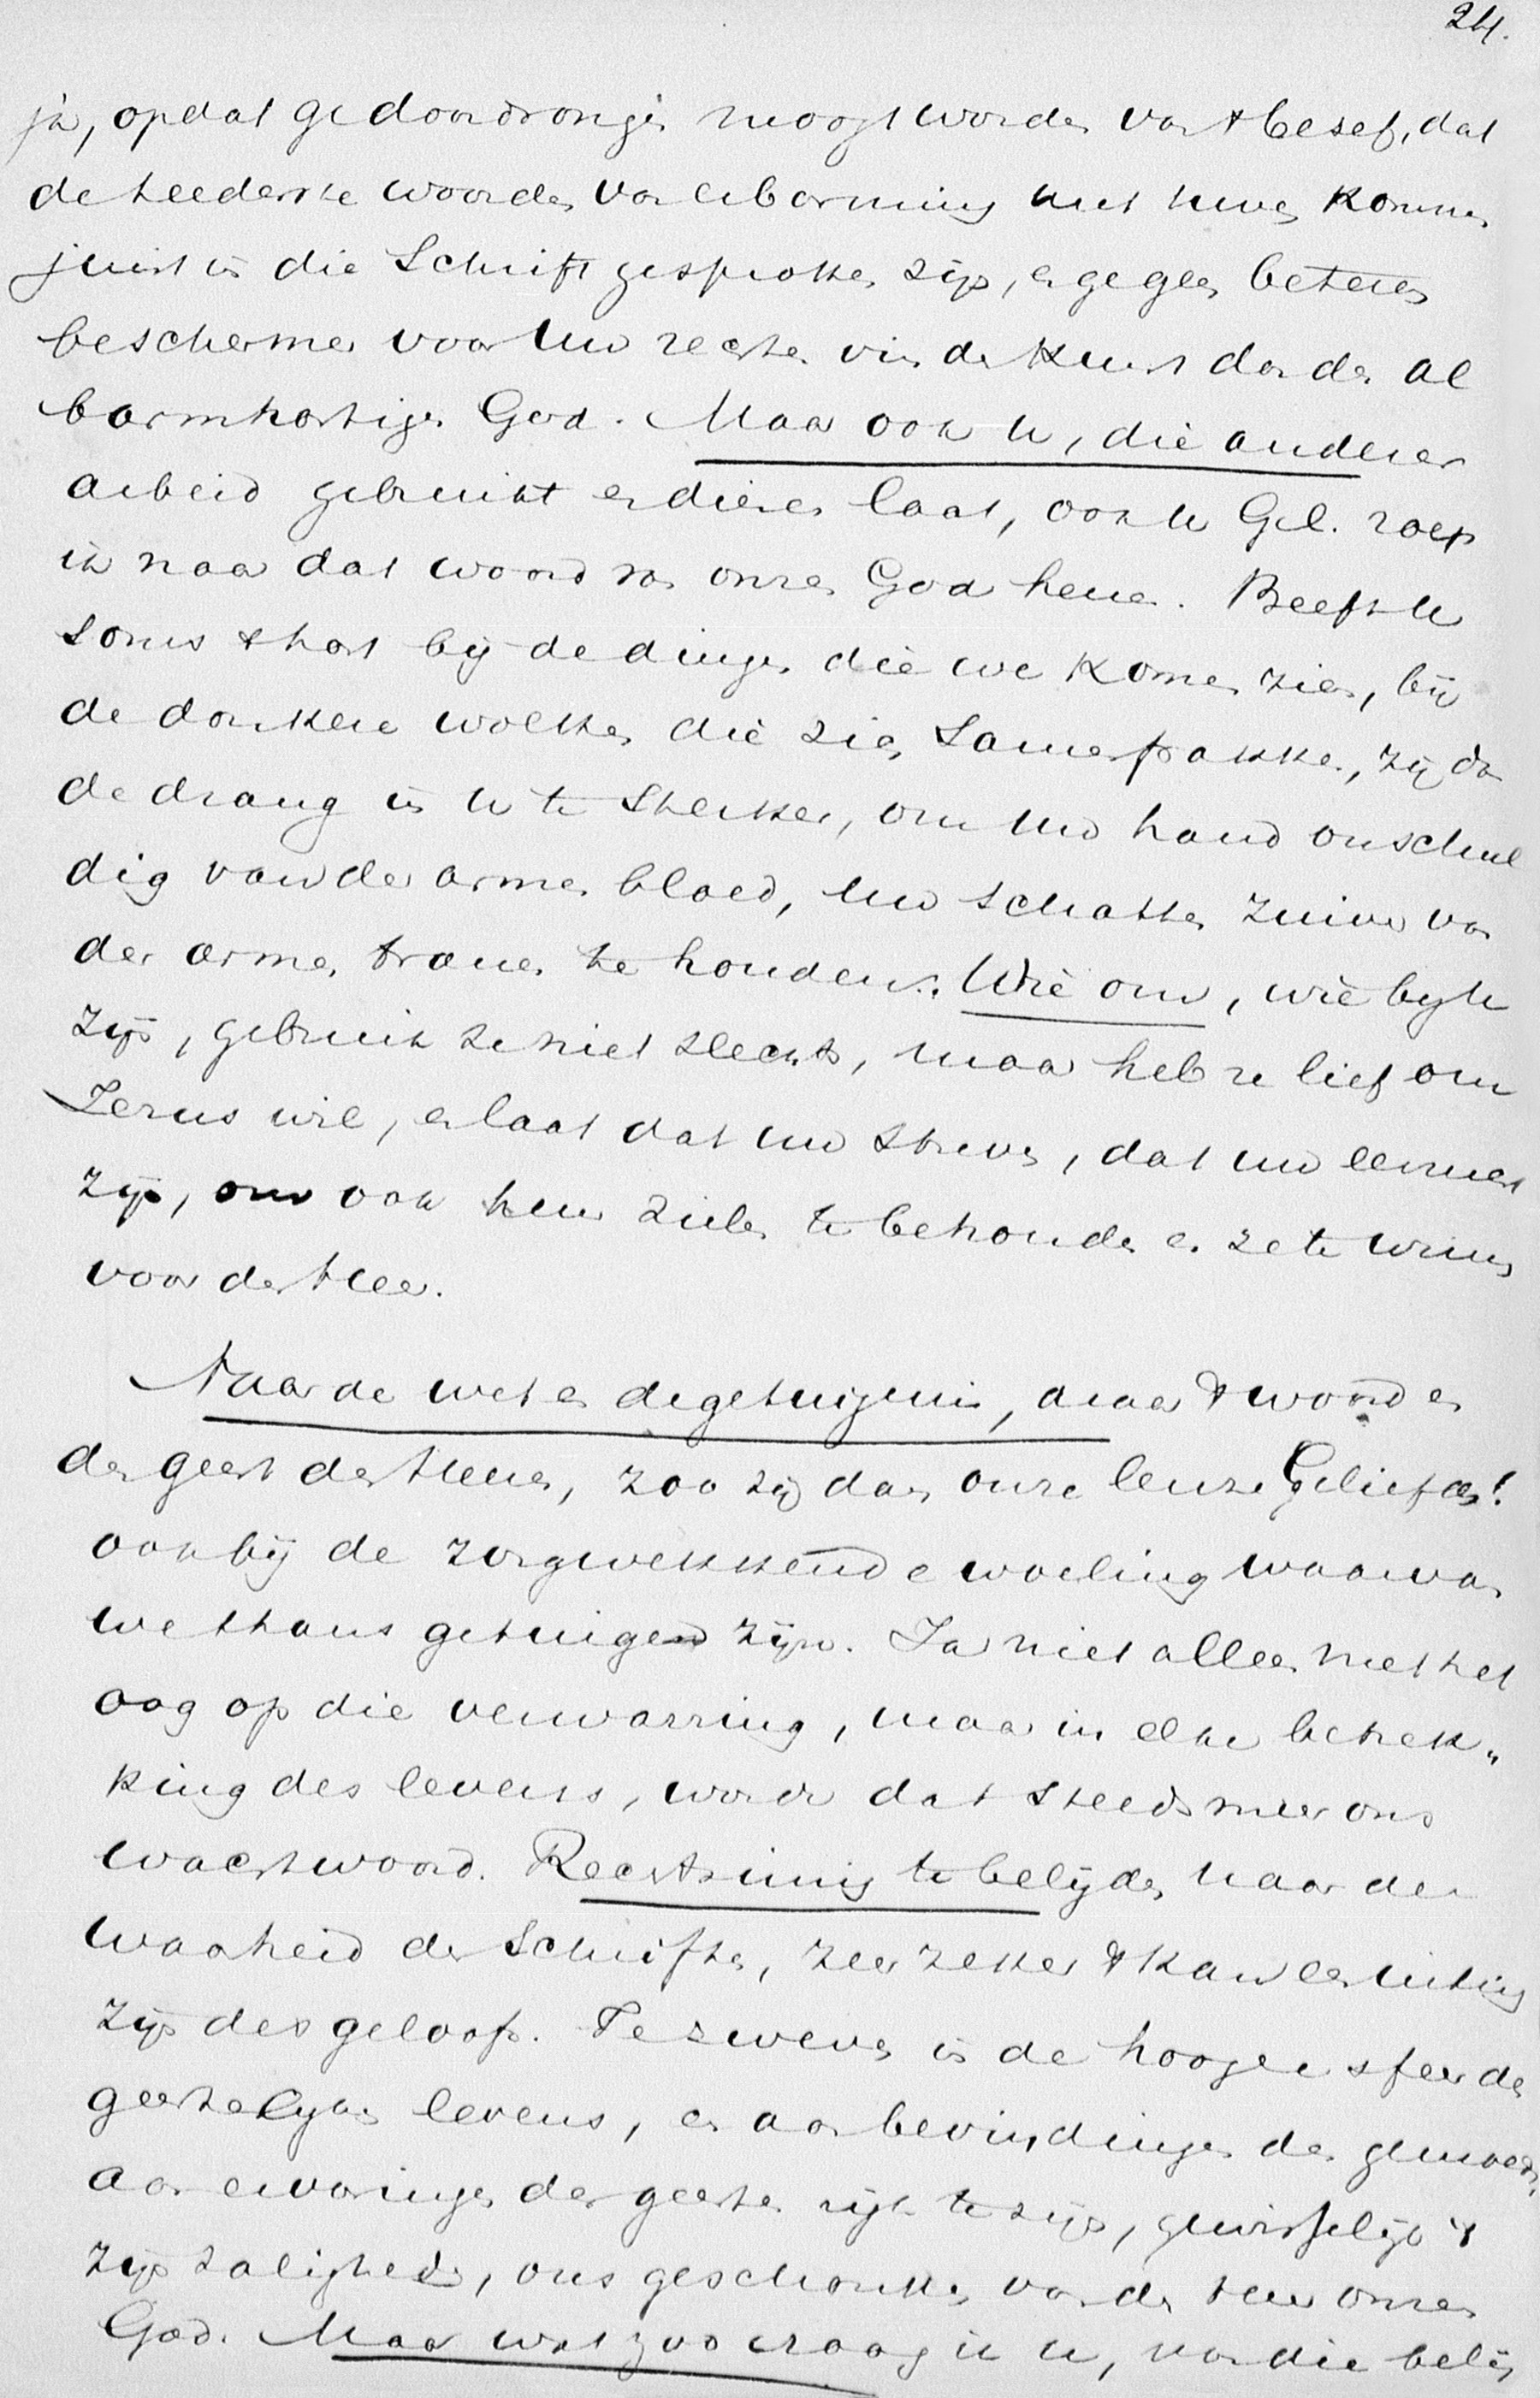 24.
ja, opdat ge doordrongen moogt worden van 't besef, dat
de teederste woorden van erbarming met uwen kommer
juist in die Schrift gesproken zijn, en ge geen beteren
beschermer voor Uw rechten vinden kunt dan den al
barmhartigen God. Maar ook u, die anderer
arbeid gebruikt en dienen laat, ook u Gel. roep
ik naar dat woord van onzen God henen. Beeft u
soms 't hart bij de dingen die we komen zien, bij
de donkere wolken die zich samenpakken, zij dan
de drang in u te sterker, om uw hand onschul
dig van der armen bloed, uw schatten zuiver van
der armen tranen te houden. Wie om, wie bij u
zijn, gebruik ze niet slechts, maar heb ze lief om
Jezus wil, en laat dat uw streven, dat uw eernst
zijn, om ook hun zielen te behouden en ze te winnen
voor den Heer.
Naar de wet en de getuigenis, naar 't woord en
den geest des Heeren, zoo zij dan onze leuze Geliefden!
ook bij de zorgwekkende woeling waarvan
we thans getuigen zijn. Ja niet alleen met het
oog op die verwarring, maar in elke betrek„
king des levens, worde dat steeds meer ons
wachtwoord. Rechtzinnig te belijden naar de
waarheid der Schriften, zeer zeker 't kan een uiting
zijn des geloofs. Te zweven in de hoogere sfeer des
geestelijken levens, en aan bevindingen des gemoeds,
aan ervaringen des geestes rijk te zijn, gewisselijk 't
zijn zaligheden, ons geschonken van den Heer onzen
God. Maar wat zoo vraag ik u, van die belij